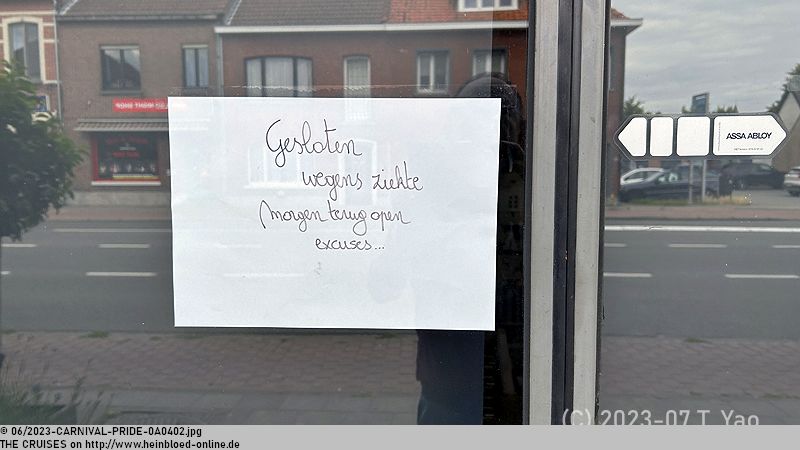 Gesloten
wegens ziekte
Morgen terug open
excuses...
ASSA ABLOY
(C) 2023-07 T. Yao
© 06/2023-CARNIVAL-PRIDE-0A0402.jpg
THE CRUISES on http://www.heinbloed-online.de